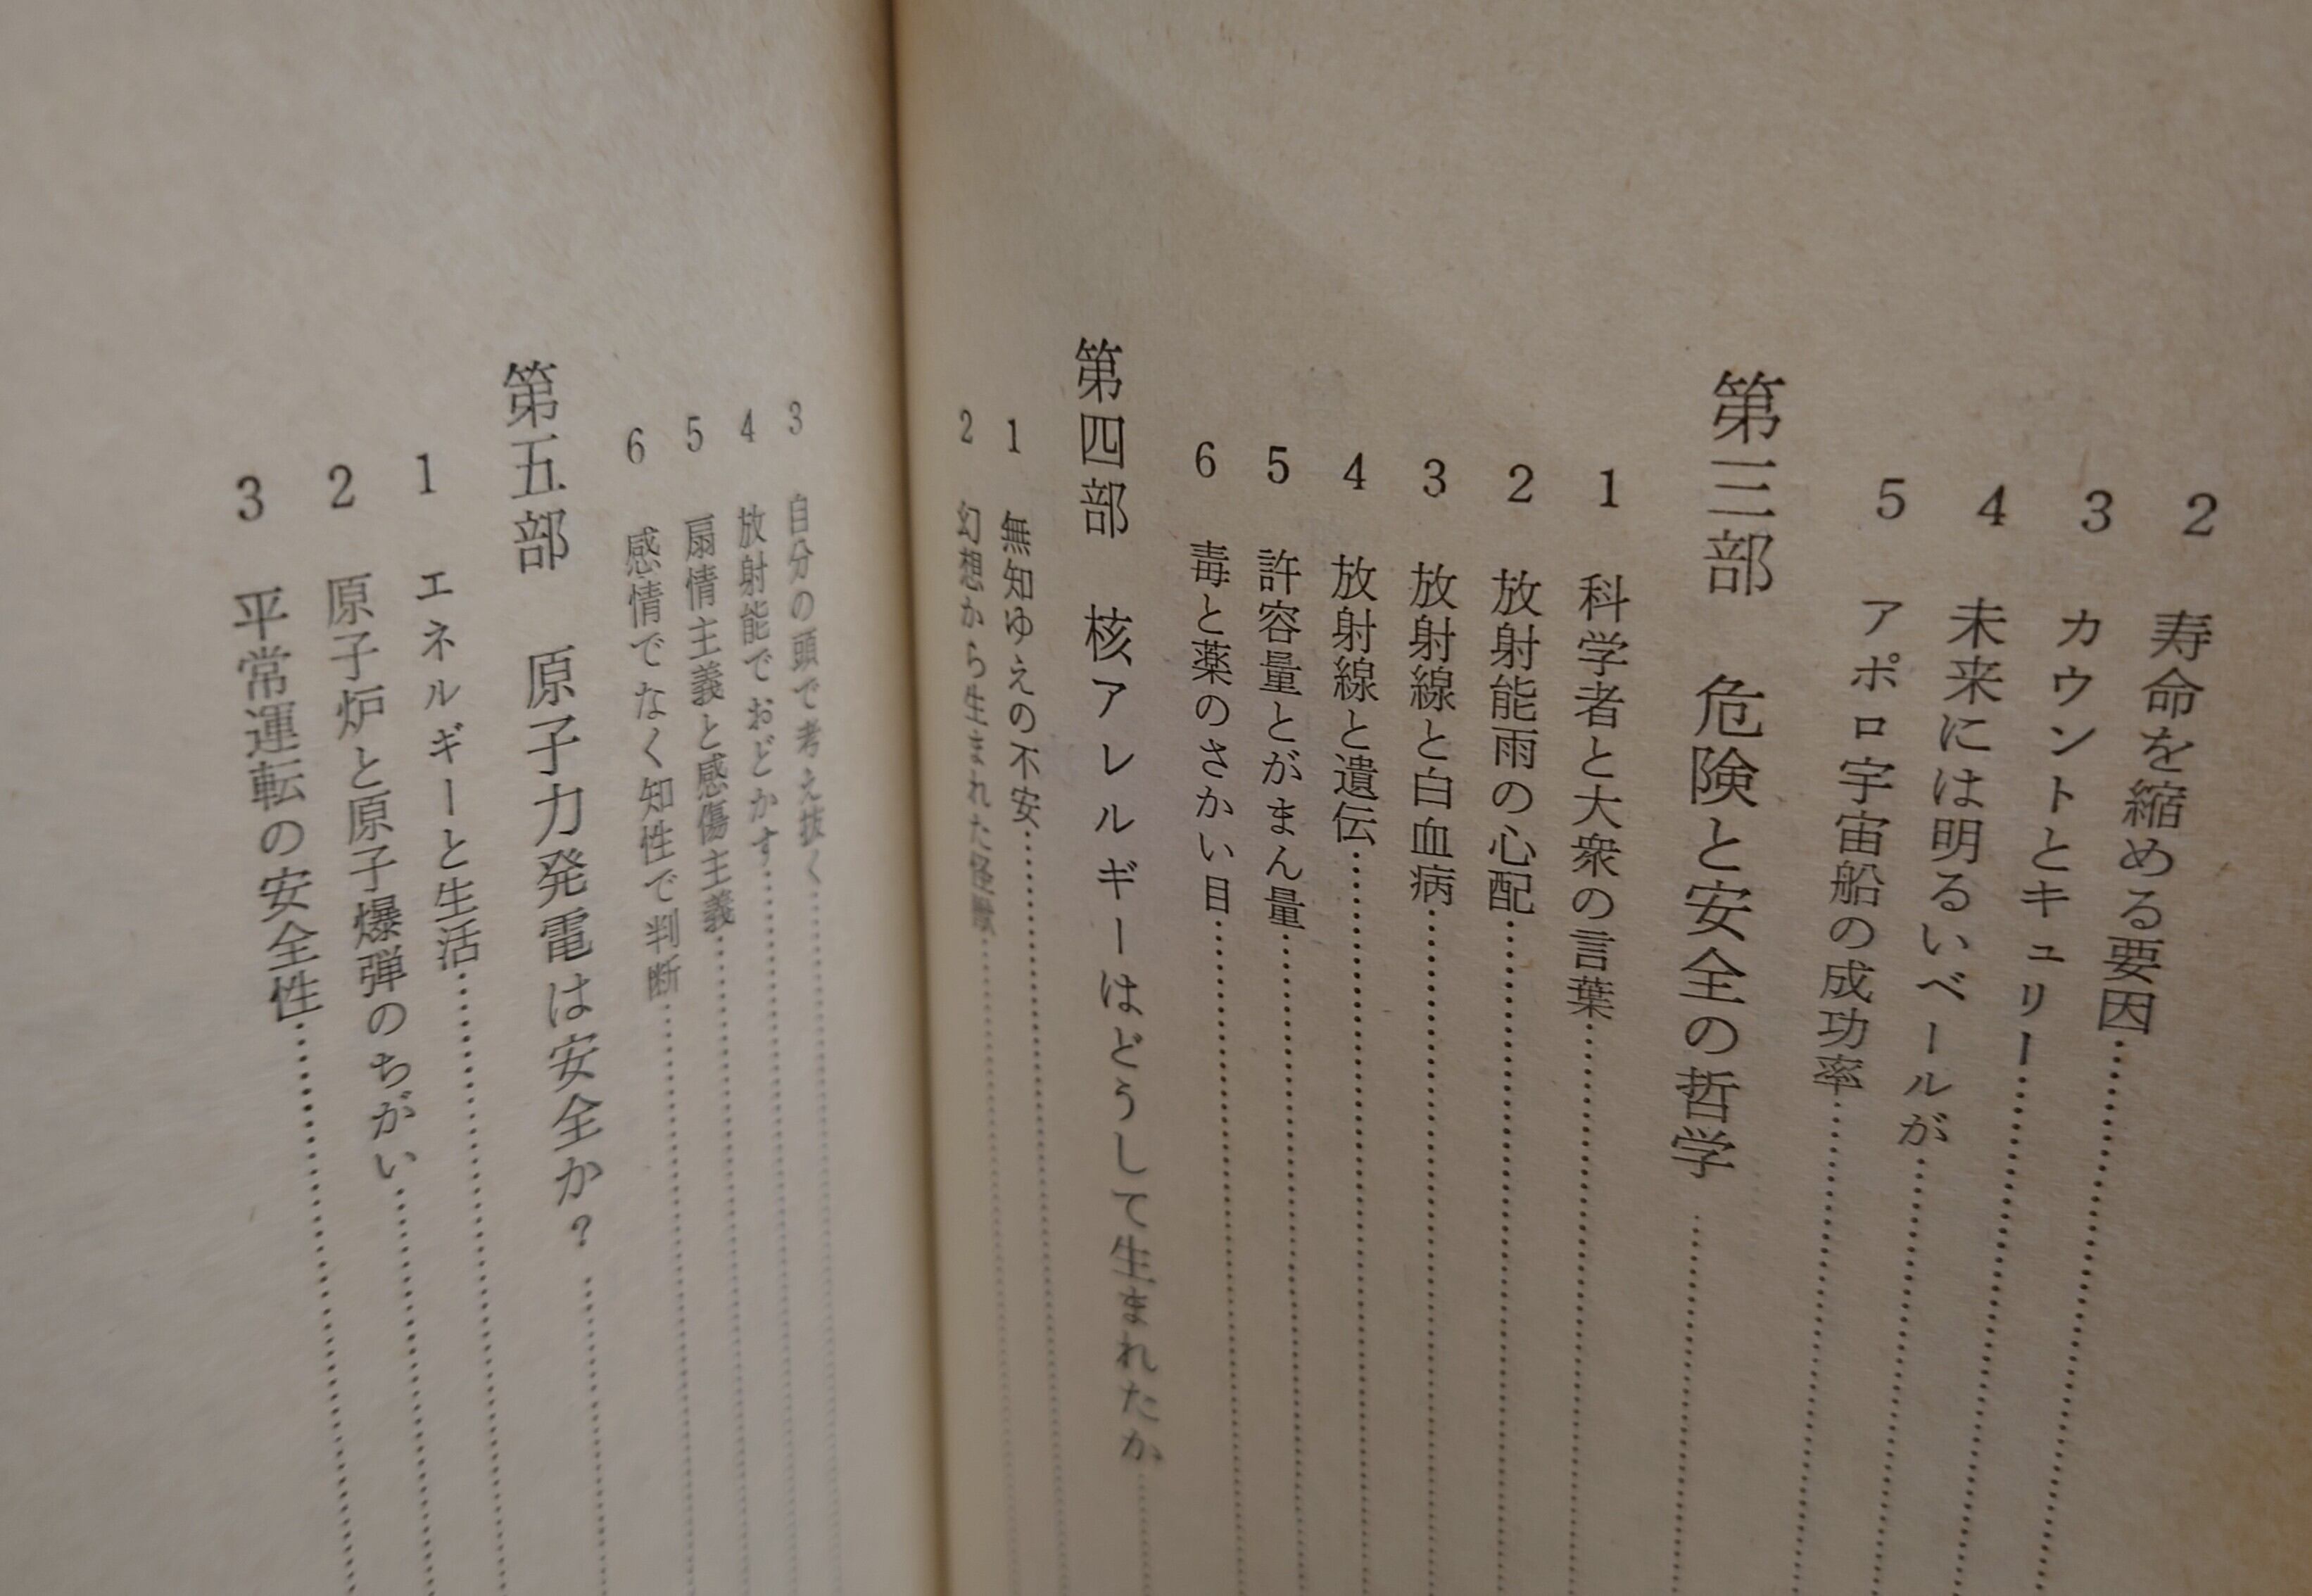 2 寿命を縮める要因
3 カウントとキュリー
4 未来には明るいベールが
5 アポロ宇宙船の成功率
第三部 危険と安全の哲学
1 科学者と大衆の言葉
2 放射能雨の心配
3 放射線と白血病
4 放射線と遺伝
5 許容量とがまん量
6 毒と薬のさかい目
第四部 核アレルギーはどうして生まれたか
1 無知ゆえの不安
2 幻想から生まれた怪獣
3 自分の頭で考え抜く
4 放射能でおどかす
5 扇情主義と感傷主義
6 感情でなく知性で判断
第五部 原子力発電は安全か?
1 エネルギーと生活
2 原子炉と原子爆弾のちがい
3 平常運転の安全性